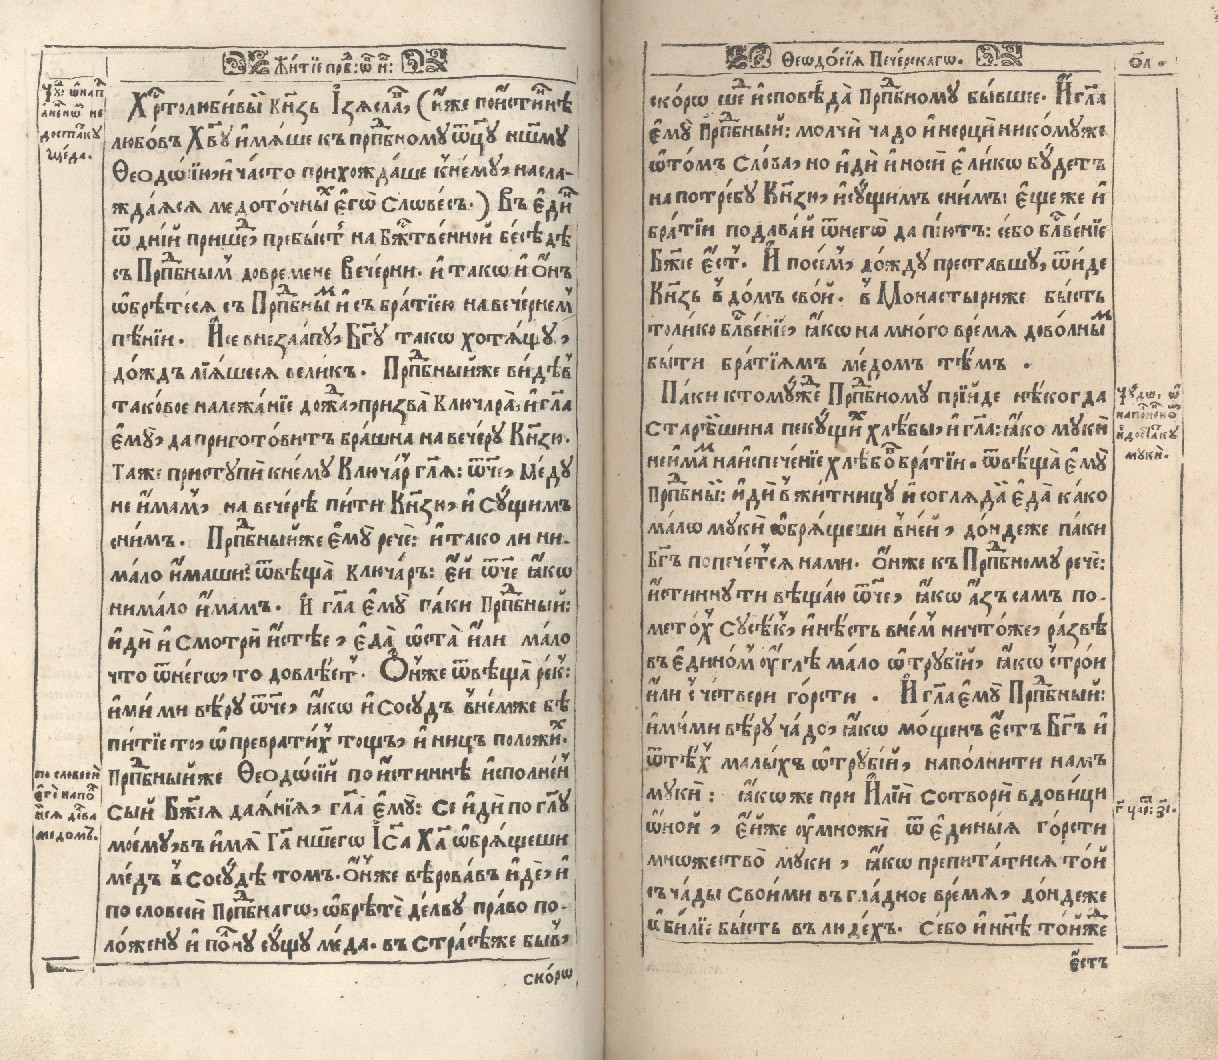 Житїе прⷣв: ѿц҃ н҃:
Чꙋ: ѿ нап
лненїѡ не
достатку
меда.
Хрⷭтолюбивыⷨ Кн҃зь Їзѧславⷧ, (и҆же пои҆стиннѣ
любо́въ Хв҃ꙋ и҆мѧше къ прпⷣбномꙋ ѿц҃ꙋ нш҃мꙋ
Ѳеодо́сїю, и҆ ча́сто прихождаше к̾немꙋ, насла-
жда́ѧсѧ медото́чныⷯ є҆гѡ̀ Слове́съ.) Въ є҆ди́нъ
ѿ дні́й прише́дⷣ, пребы́стⷭ на Бж҃твенной бесѣдѣ
съ Прпⷣбнымъ до времене Вече́рни. и҆ такѡ и҆ ѻ҆́нъ
ѡ҆брѣ́тесѧ съ Прпⷣбныⷨ и҆ съ бра́тїею на вече́рнемъ
пѣ́нїи. И҆ се внеза́апꙋ, Бг҃ꙋ такѡ хотѧ́щꙋ,
до́ждъ лїѧ́шесѧ вели́къ. Прпⷣбный же ви́дѣвъ
тако́вое належа́нїе дождѧⷣ, призва̀ Ключарѧ̀, и҆ гл҃а
є҆мꙋ̀, да пригото́витъ бра́шна на вече́рꙋ Кн҃зю.
Таже пристꙋпѝ к̾немꙋ Ключа́рь гл҃ѧ: ѿч҃е, Ме́дꙋ
не и҆́мамъ, на вече́рѣ пи́ти Кн҃зю, и҆ сꙋ́щимъ
сни́мъ. Прпⷣбный же є҆мꙋ̀ речѐ: и҆ тако ли ни-
ма́ло и҆́маши? ѿвѣща̀ ключа́ръ: є҆́й ѿч҃е ꙗ҆́кѡ
нима́ло и҆́мамъ. И҆ гл҃а є҆мꙋ̀ паки Прпⷣбный:
и҆дѝ и҆ смотрѝ и҆́стѣе, є҆да̀ ѡ҆ста̀ и҆̀ли ма́ло
что̀ ѿ него̀, то довлѣ́етъ. Ѻ҆́нже ѿвѣща̀ ре́къ:
и҆мѝ ми вѣ́рꙋ ѿч҃е, ꙗ҆́кѡ и҆ Сосꙋ́дъ в̾не́мже бѣ̀
питїе то, ѡ҆превратиⷯ тощъ, и҆ ни́цъ положи́хъ.
по словеси́
є҆го̀ напо́л
нисѧ дѣва
медомъ.
Прпⷣбный же Ѳеодо́сїй пои҆стиннѣ и҆спо́лнен
сый Бж҃їѧ даѧ́нїѧ, гл҃а̀ є҆мꙋ̀: Се и҆дѝ по гл҃ꙋ
моемꙋ̀, въ и҆́мѧ Гⷭ҃а нш҃егѡ І҆с҃а Хⷭ҃а ѡ҆брѧ́щеши
ме́дъ в̾ сосꙋ́дѣ томъ. Ѻ҆́нже вѣ́рова́въ и҆́де, и҆
по словеси́ Прпⷣбнагѡ, ѡ҆брѣ́тѐ де́лвꙋ пра́во по-
ло́женꙋ и҆ по́лнꙋ сꙋ́щꙋ ме́да. въ стра́сѣже бы́въ,
ско́рѡ
Ѳеодо́сїѧ Пече́рскагѡ.
ско́рѡ шеⷣ и҆сповѣ́да̀ Прпⷣбномꙋ бы́вшее. И҆ гл҃а
є҆мꙋ̀ Прпⷣбный: молчѝ чадо и҆ нерцѝ нико́мꙋже
ѡ҆ то́мъ Сло́ва, но и҆дѝ и҆ носѝ є҆ли́кѡ бꙋ́детъ
на потре́бꙋ Кн҃зю, и҆ сꙋ́щимъ сни́мъ: є҆ще же и҆
бра́тїи подава́й ѿ него̀ да пїю́тъ: се бо бл҃ве́нїе
Бж҃їе є҆́стъ. И҆ посе́мъ, до́ждꙋ преста́вшꙋ, ѿи́де
Кн҃зь в̾ до́мъ сво́й. в̾ Монастыри же бы́сть
толи́ко бл҃ве́нїе, ꙗ҆́кѡ на мно́го вре́мѧ дово́лныⷨ
бы́ти бра́тїѧмъ ме́домъ тѣ́мъ .
Чꙋ́до, ѡ҆
наполненїѡ
и҆ достатку
муки.
Па́ки ктомꙋ́же Прпⷣбномꙋ прїи́де нѣ́когда
старѣ́йшина пекꙋ́щиⷯ хлѣ́бы, и҆ гл҃а: ꙗ҆́ко мꙋки̇̀
не и҆́маⷨ на и҆спече́нїе хлѣ́бо́въ бра́тїи. ѿвѣща̀ є҆мꙋ̀
Прпⷣбный: и҆дѝ в̾ жи́тницꙋ и҆ соглѧда̀й є҆да̀ ка́ко
ма́лѡ мꙋкѝ ѡ҆брѧ́щеши в̾не́й, до́ндеже па́ки
Бг҃ъ попече́тсѧ на́ми. Ѻ҆́нже къ Прпⷣбномꙋ речѐ:
и҆́стиннꙋ ти вѣща́ю ѿч҃е, ꙗ҆́кѡ а҆́зъ самъ по-
мето́хъ Сꙋсѣ́къ, и҆ нѣ́сть в̾не́мъ ничто́же, ра́звѣ
въ є҆ди́номъ ꙋ҆́глѣ ма́ло ѡ҆трꙋбі́й, ꙗ҆́кѡ с̾ тро́и
и҆̀ли с̾ че́твери го́рсти . И҆ гл҃а є҆мꙋ̀ Прпⷣбный:
и҆мѝ ми вѣ́рꙋ ча́до, ꙗ҆́кѡ мо́щенъ є҆́стъ Бг҃ъ и҆
ѿ тѣ́хъ ма́лыхъ ѡ҆трꙋбі́й, напо́лнити на́мъ
г҃ цар: з҃і.
мꙋкѝ: ꙗ҆́кѡже при И҆лїѝ сотворѝ вдови́ци
ѡ҆́ной, є҆́йже ꙋ҆мно́жѝ ѿ є҆ди́ныѧ го́рсти
мно́жество̀ мꙋки, ꙗ҆́кѡ препита́тисѧ то́й
съ ча́ды свои́ми въ гла́дное вре́мѧ, до́ндеже
ѡ҆би́лїе бы́сть въ лю́дехъ. Се бо и҆ нн҃ѣ то́йже
є҆́стъ